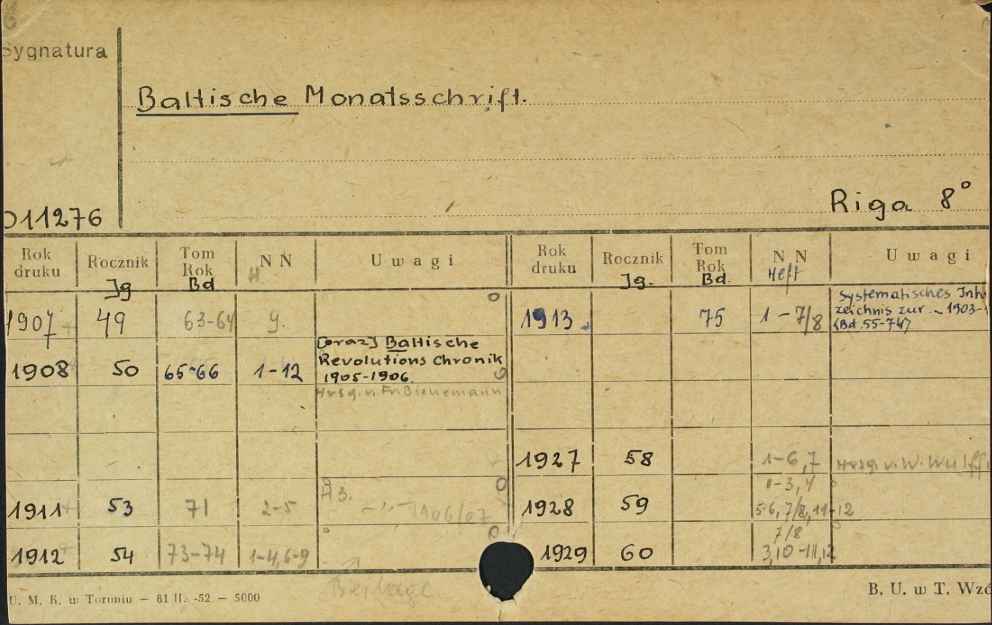 Sygnatura
Baltische Monatsschrift.
011276
Riga 8°
Rok druku Rocznik Tom Rok N N Uwagi Rok druku Rocznik Tom Rok N N Uwagi
Jg Bd H Jg. Bd. Heft
1907 49 63-64 9. 1913 75 1-7/8 Systematisches Inh
zeichnis zur 1903-
(Bd. 55-74)
[oraz] Baltische
Revolutions Chronik
1905-1906.
1908 50 65-66 1-12
Hrsg. v. Fr. Bienemann
1927 58 1-6,7 Hrsg. v. W. Wulff
1911 53 71 2-5 1906/07 1928 59 1-3,4
5-6, 7/8, 11-12
1912 54 73-74 1-4,6-9 1929 60 7/8
3,10-11,12
Beilage
U. M. K. w Toruniu — 61 II. -52 — 5000
B. U. w T. Wzó